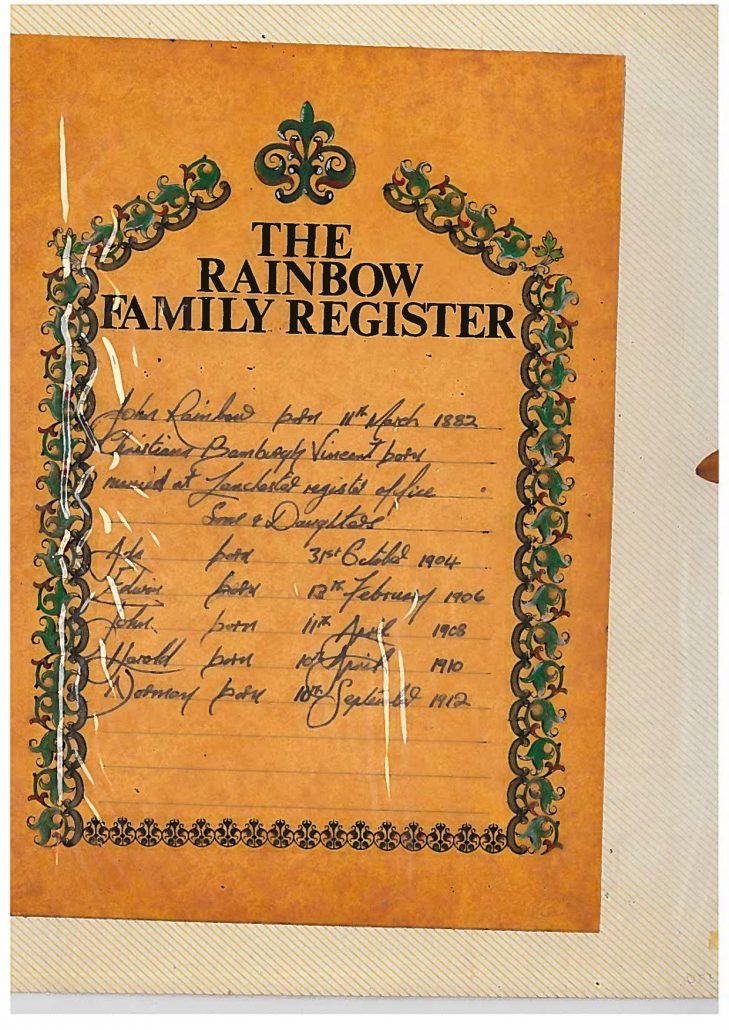 THE
RAINBOW
FAMILY REGISTER
John Rainbow born 11th March 1882
Christiana Bamburgh Vincent born
married at Lanchester register office
Sons & Daughters
Ada born 31st October 1904
Edwin born 12th February 1906
John born 11th April 1908
Harold born 10th April 1910
Norman born 10th September 1912